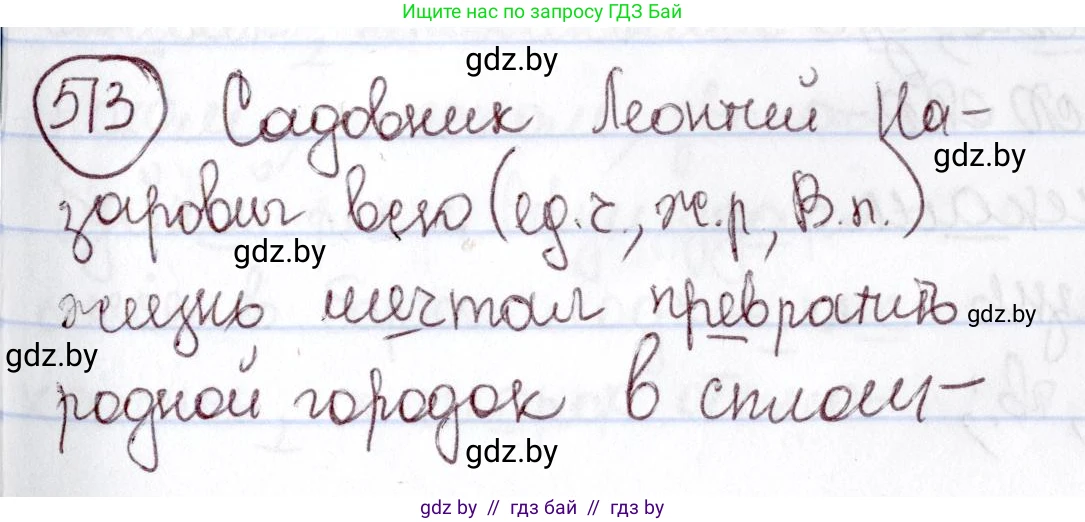 Ищите нас по запросу ГДЗ Бай
gdz.by
513 Садовник Леонтий На-
gdz.by
зарович всю (ед.ч., ж.р., В.п.)
gdz.by
жизнь мечтал превратить gdz.by
gdz.by
родной городок в сплош-
gdz.by
gdz by // гдз бай // гдз by